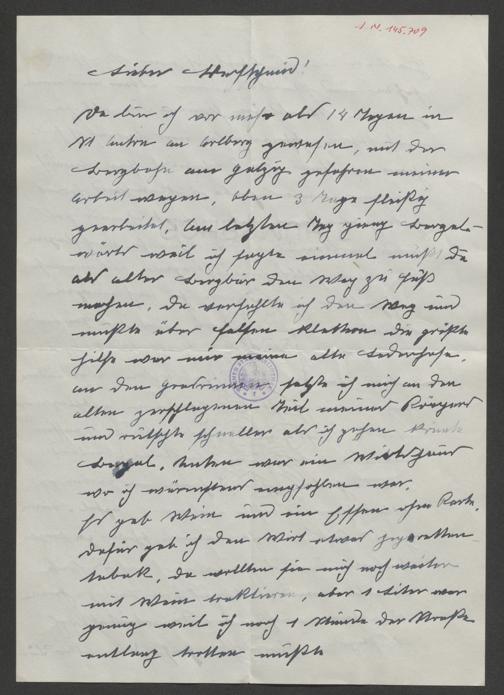 I. N. 145.709
Lieber
Da bin ich vor mehr als 14 Tagen in
St Anton am Arlberg gewesen, mit der
Bergbahn am Galzig gefahren meiner
Arbeit wegen, oben 3 Tage fleißig
gearbeitet. Am letzten Tag ging bergab-
wärts weil ich sagte einmal mußt du
als alter Bergbär den Weg zu Fuß
machen. Da verfehlte ich den Weg und
mußte über Felsen klettern die größte
Hilfe war mir meine alte Lederhose.
An den Grasrinnen setzte ich mich an den
alten zerschlagenen Teil meines Körpers
und rutschte schneller als ich gehen könnte
Bergab. Unten war ein Wirtshaus
wo ich wärmstens empfohlen war.
Es gab Wein und ein Essen ohne Karte.
Dafür gab ich den Wirt etwas Zigaretten-
tabak. Da wollten sie mich noch weiter
mit Wein traktieren, aber 1 Liter war
genug weil ich noch 1 Stunde der Straße
entlang trotten mußte